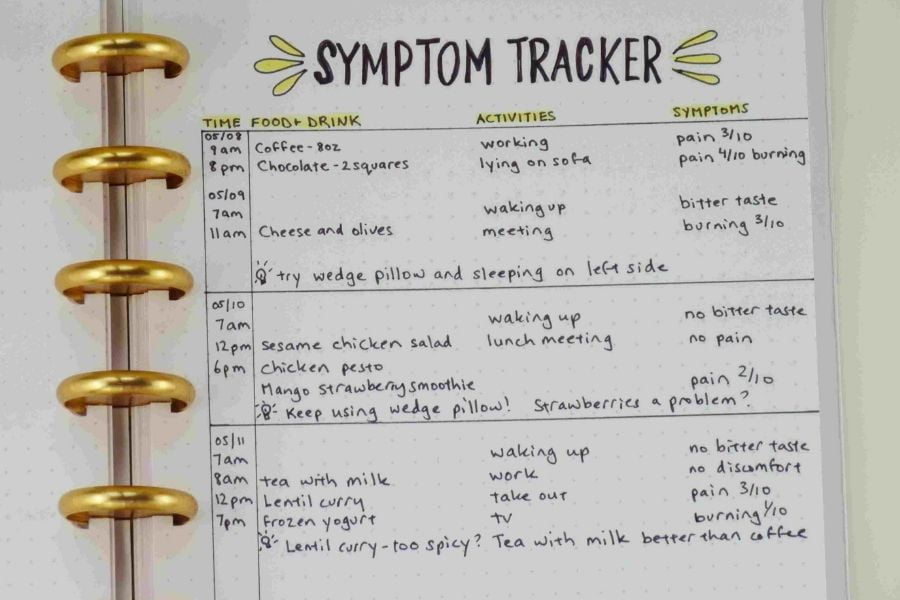 SYMPTOM TRACKER
TIME FOOD + DRINK ACTIVITIES SYMPTOMS
05/08
9am Coffee - 8oz working pain 3/10
8pm Chocolate - 2 squares lying on sofa pain 4/10 burning
05/09
7am waking up bitter taste
11am Cheese and olives meeting burning 3/10
try wedge pillow and sleeping on left side
05/10
7am waking up no bitter taste
12pm sesame chicken salad lunch meeting no pain
6pm chicken pesto
Mango strawberry smoothie pain 2/10
Keep using wedge pillow! Strawberries a problem?
05/11
7am waking up no bitter taste
8am tea with milk work no discomfort
12pm Lentil curry take out pain 3/10
7pm Frozen yogurt TV burning 1/10
Lentil curry - too spicy? Tea with milk better than coffee